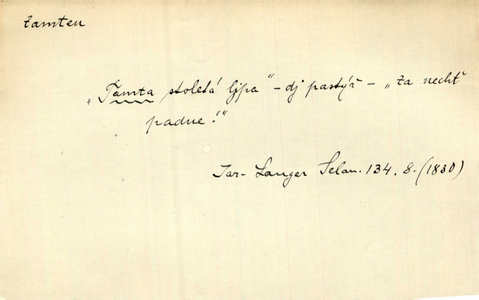 tamten
„Tamta stoletá ljpa" – dj pastýř – „ta nechť
padne!"
Jar. Langer Selan. 134. 8. (1830)